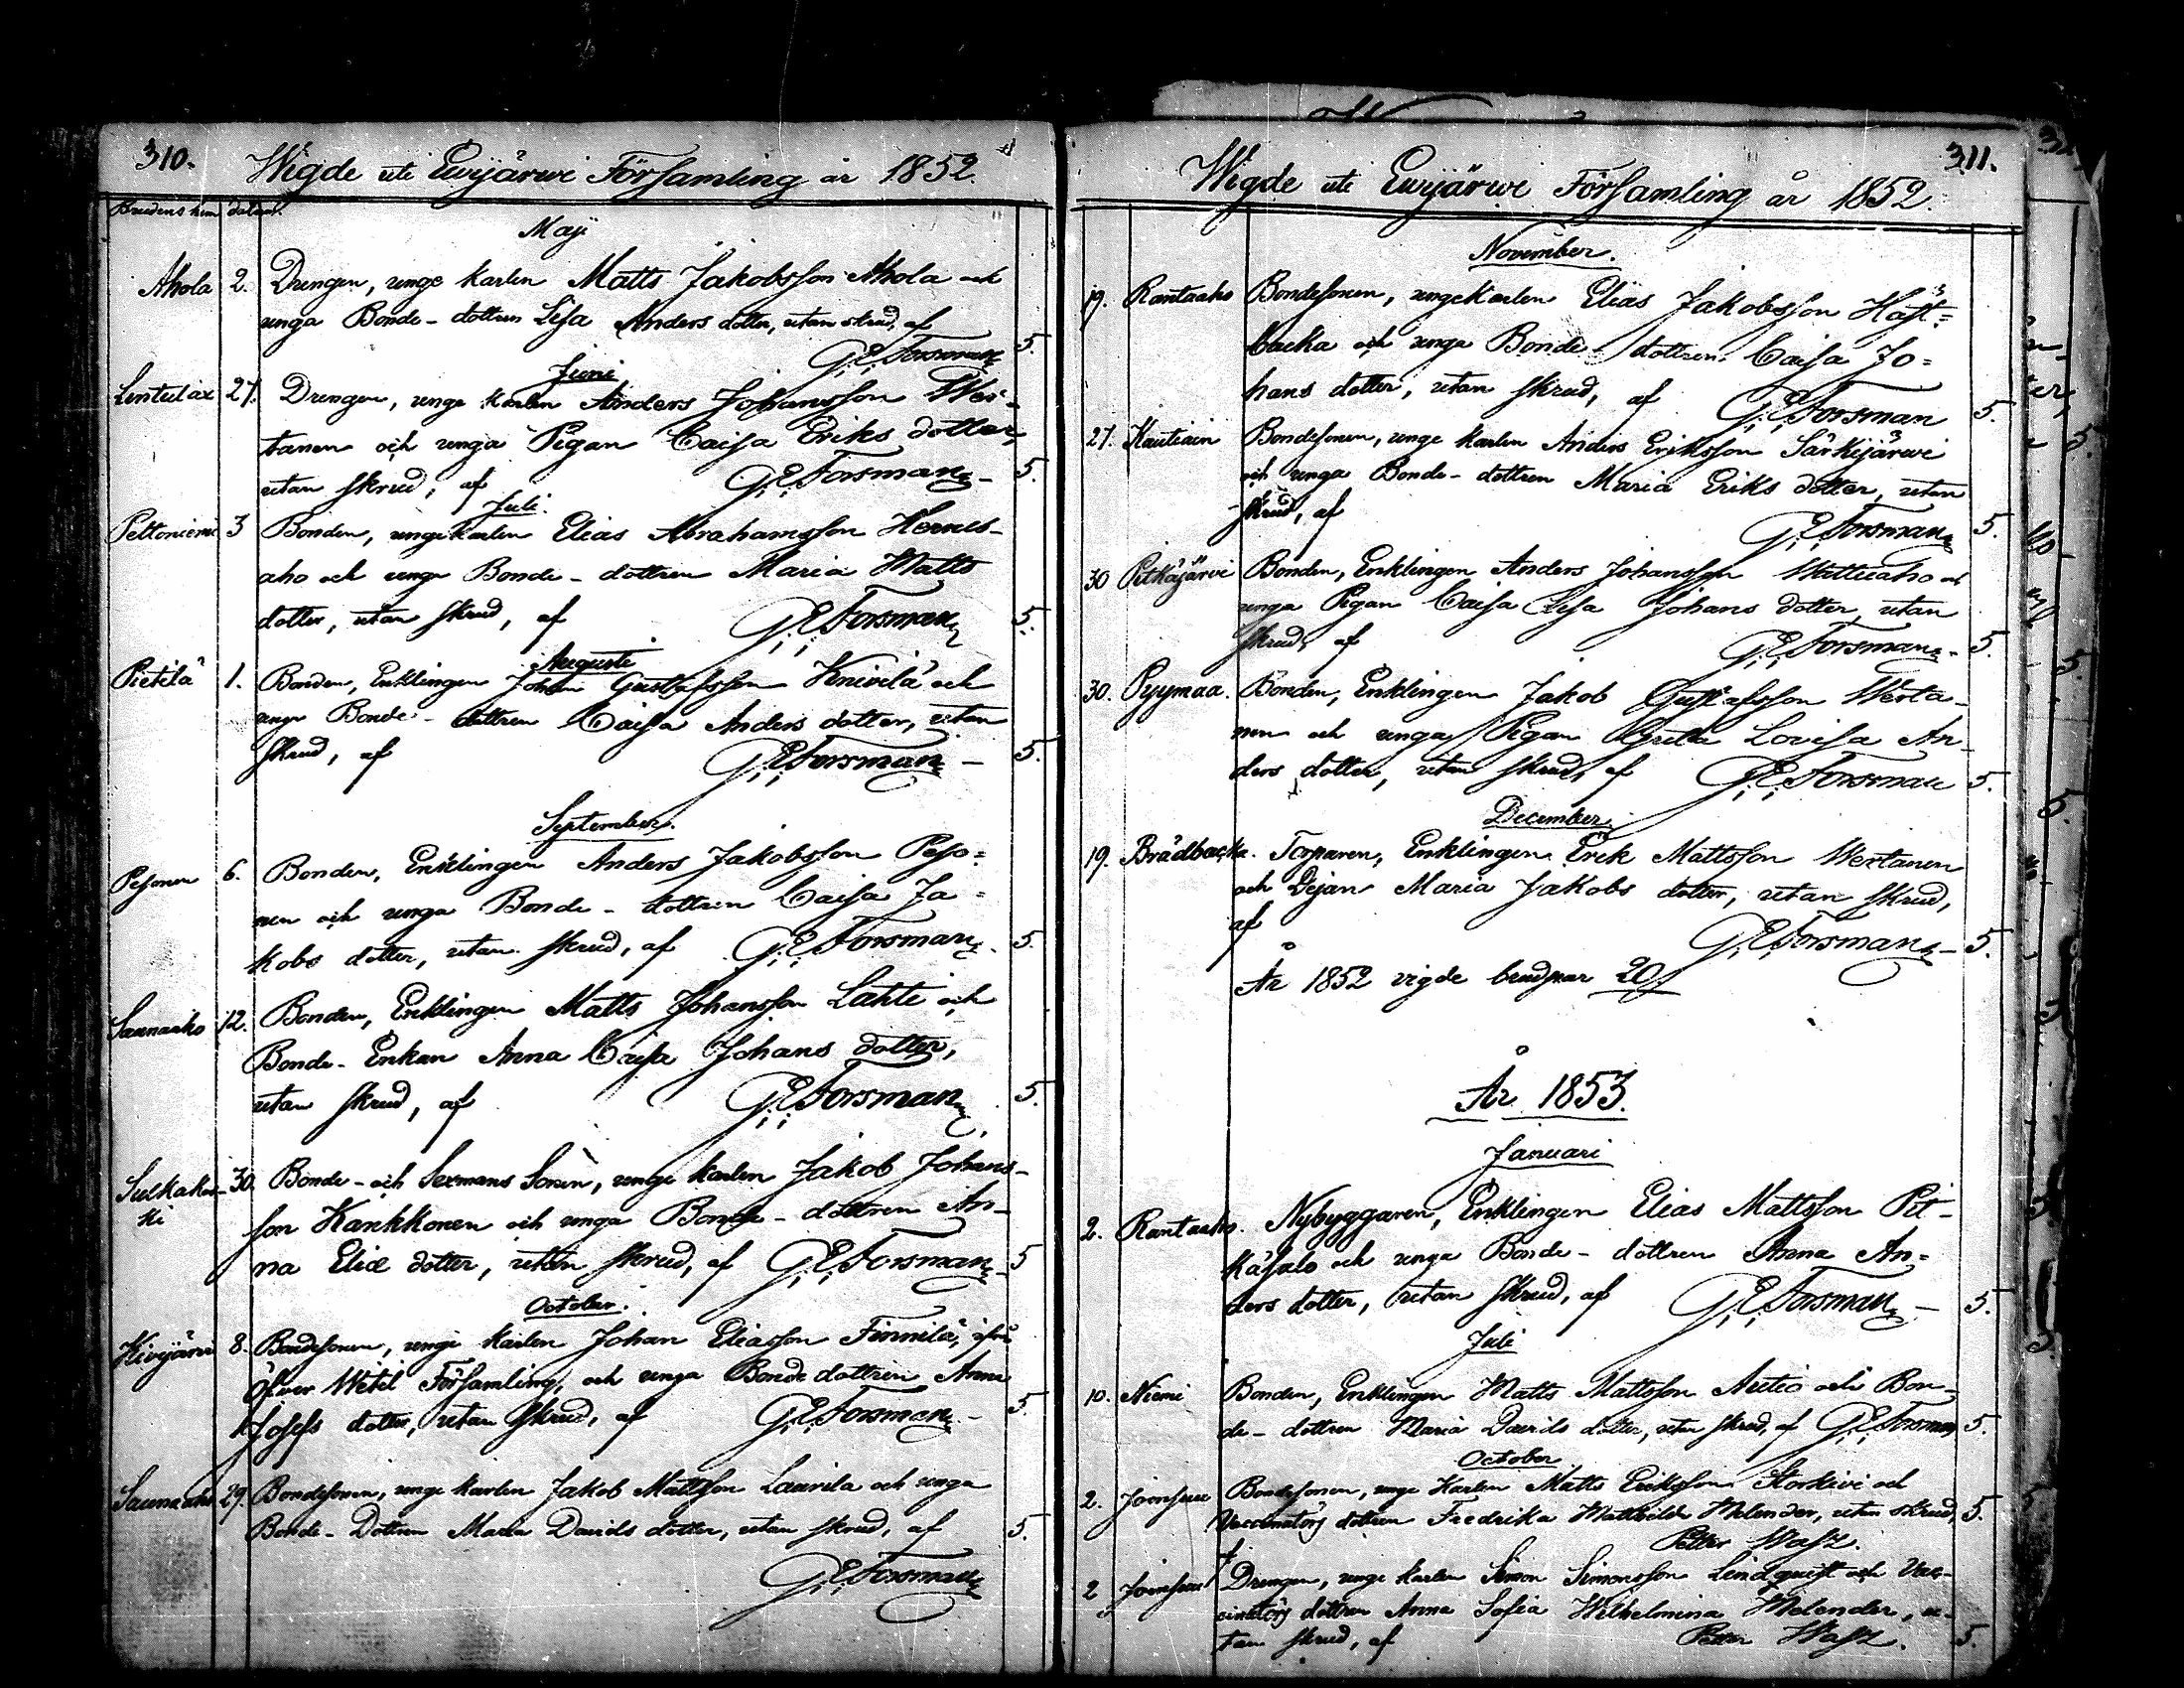 310.
Wigde uti Ewijärwi Församling år 1852.
Brudens hem datum.
Maji
Ahola 2. Drengen, unge karlen Matts Jakobsson Ahola och
unga Bonde-dottren Lisa Anders dotter, utan skrud, af
G.E. Forsman 5.
Juni
Lintulax 27. Drengen, unge karlen Anders Johansson Wer-
tanen och unga Pigan Caisa Eriks dotter,
utan skrud, af G.E. Forsman 5.
Juli.
Peltoniemi 3 Bonden, unge karlen Elias Abrahamsson Hernes-
aho och unga Bonde-dottren Maria Matts
dotter, utan skrud, af G.E. Forsman 5.
Augusti
Pietilä 1. Bonden, Enklingen Johan Gustafsson Knivilä och
unga Bonde-dottren Caisa Anders dotter, utan
skrud, af G.E. Forsman 5.
September.
Pesonen 6. Bonden, Enklingen Anders Jakobsson Peso=
nen och unga Bonde-dottren Caisa Ja=
kobs dotter, utan skrud, af G.E. Forsman 5.
Saunaaho 12. Bonden, Enklingen Matts Johansson Lahti och
Bonde-Enkan Anna Caisa Johans dotter,
utan skrud, af G.E. Forsman 5.
30. Bonde- och Sexmans Sonen, unge karlen Jakob Johans-
ki son Kankkonen och unga Bonde-dottren An-
na Eliæ dotter, utan skrud, af G.E. Forsman 5
October.
Kivijärvi 8. Bondesonen, unge karlen Johan Eliasson Finnilä, ifrån
Öfver Wetil Församling, och unga Bonde dottren Anna
Josefs dotter, utan skrud, af G.E. Forsman 5.
Saunaaho 29. Bondesonen, unge karlen Jakob Mattsson Laurila och unga
Bonde-Dottren Maria Davids dotter, utan skrud, af 5.
G.E. Forsman
311.
Wigde uti Ewijärwi Församling år 1852.
November.
19. Rantaaho Bondesonen, unge karlen Elias Jakobsson Häst=
backa och unga Bonde dottren Caisa Jo=
hans dotter, utan skrud, af G.E. Forsman 5.
27. Kautiain Bondesonen, unge karlen Anders Eriksson Särkijärwi
och unga Bonde-dottren Maria Eriks dotter, utan
skrud, af G.E. Forsman 5.
30 Pitkäjärvi Bonden, Enklingen Anders Johansson och
unga Pigan Caisa Lisa Johans dotter, utan
skrud, af G.E. Forsman 5.
30. Pyymaa. Bonden, Enklingen Jakob Gustafsson Werta-
nen och unga Pigan Greta Lovisa An-
ders dotter, utan skrud, af G.E. Forsman 5.
December
19. Brådbacka. Torparen, Enklingen Erik Mattsson Wertanen
och Pigan Maria Jakobs dotter, utan skrud,
af G.E. Forsman 5.
År 1852 vigde brudpar 20
År 1853.
Januari
2. Rantaaho. Nybyggaren, Enklingen Elias Mattsson Pit-
käsalo och unga Bonde-dottren Anna An=
ders dotter, utan skrud, af G.E. Forsman 5.
Juli
10. Niemi Bonden, Enklingen Matts Mattsson Autio och Bon-
de-dottren Maria Davids dotter, utan skrud, af G.E. Forsman 5.
October
2. Joensuu Bondesonen, unge Karlen Matts Eriksson Storkivi och
Vaccinatörs dottren Fredrika Mathilda Melender, utan skrud, 5.
af Petter Wasz.
2 Joensuu Drengen, unge karlen Simon Simonsson Lindquist och Vac-
cinatörs dottren Anna Sofia Wilhelmina Melender, u-
tan skrud, af Petter Wasz. 5.